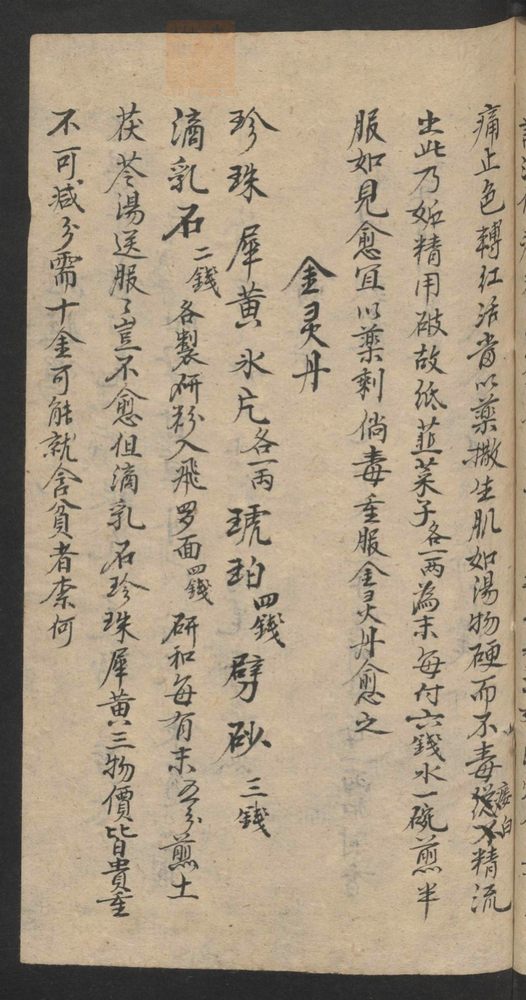 痛止色轉红活當以藥撒生肌如湯物硬而不毒精流
痿白
出此乃妬精用破故纸韮菜子各一两為末每付六錢水一碗煎半
服如見愈宜以藥刺倘毒重服金灵丹愈之
金灵丹
珍珠 犀黄 氷片各一両 琥珀四錢 劈砂三錢
滴乳石二錢 各製研粉入飛罗面四錢 研和每有末五分煎土
茯苓湯送服之豈不愈但滴乳石珍珠犀黄三物價皆貴重
不可减分需十金可能就含貧者柰何